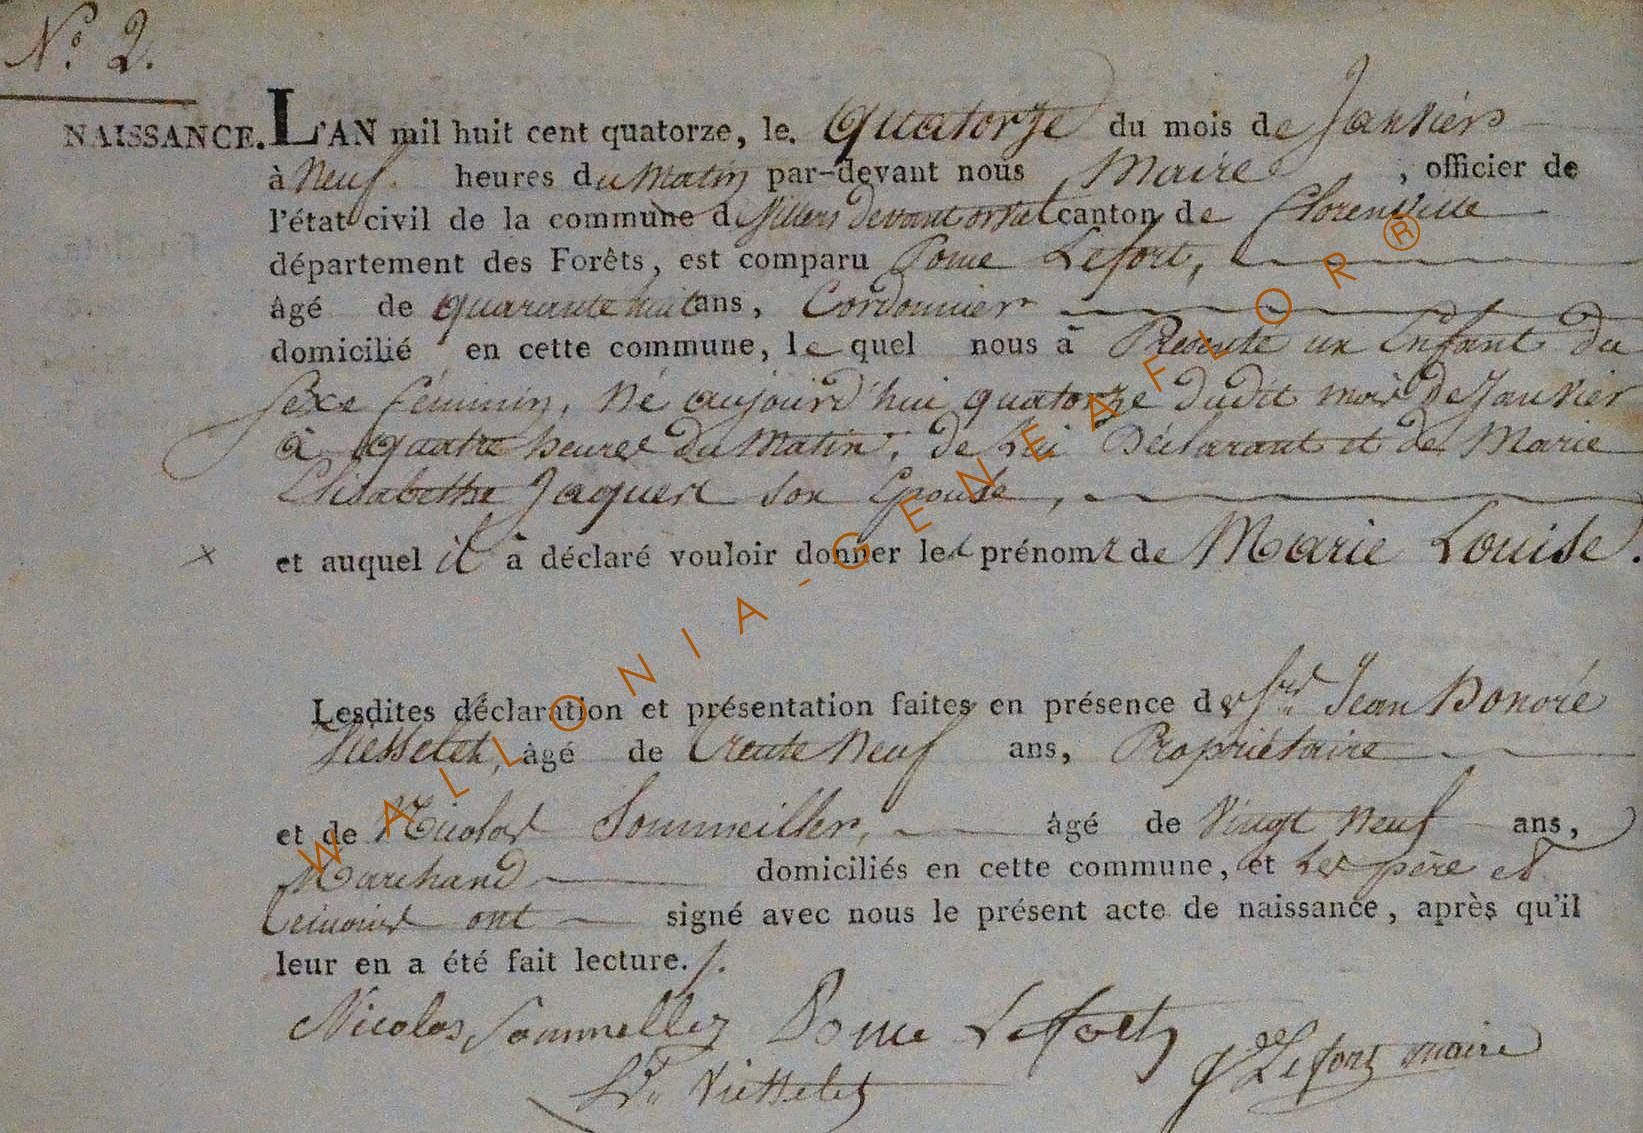 N.° 2.
NAISSANCE. L'AN mil huit cent quatorze, le quatorze du mois de Janvier
à neuf heures du Matin par-devant nous Maire , officier de
l'état civil de la commune de Villers devant orval canton de Florenville
département des Forêts, est comparu Pome Lefort,
âgé de quarante huit ans, Cordonnier
domicilié en cette commune, le quel nous à Présenté un Enfant du
sexe féminin, né aujourd'hui quatorze dudit mois de Janvier
à quatre heures du Matin, de lui Déclarant et de Marie
Elisabethe Jaquert son Epouse,
et auquel il à déclaré vouloir donner les prénoms de Marie Louise.
Lesdites déclaration et présentation faites en présence de Jean Honoré
Viesselet, âgé de trente neuf ans, Propriétaire
et de Nicolas Sommeiller, âgé de vingt neuf ans,
Marchand domiciliés en cette commune, et les père et
témoins ont signé avec nous le présent acte de naissance, après qu'il
leur en a été fait lecture.
Nicolas Sommellez Pome Lefort
Viesselet Lefort maire
WALLONIA-GENEAFLOR®